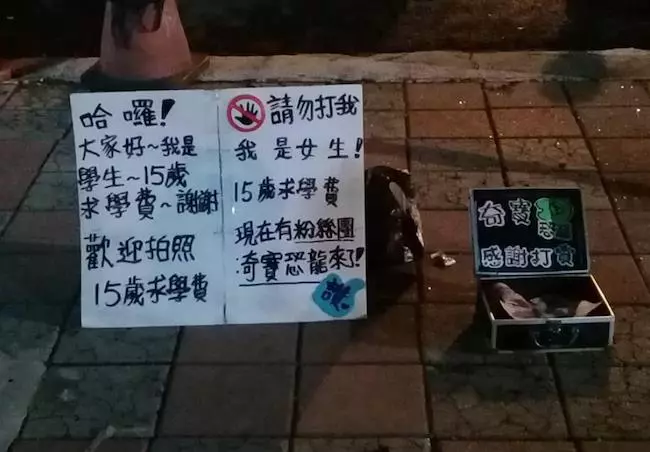 哈囉!
大家好~我是
學生~15歲
求學費~謝謝
歡迎拍照
15歲求學費
請勿打我
我是女生!
15歲求學費
現在有粉絲團
奇寶恐龍來了!
奇寶恐龍
感謝打賞